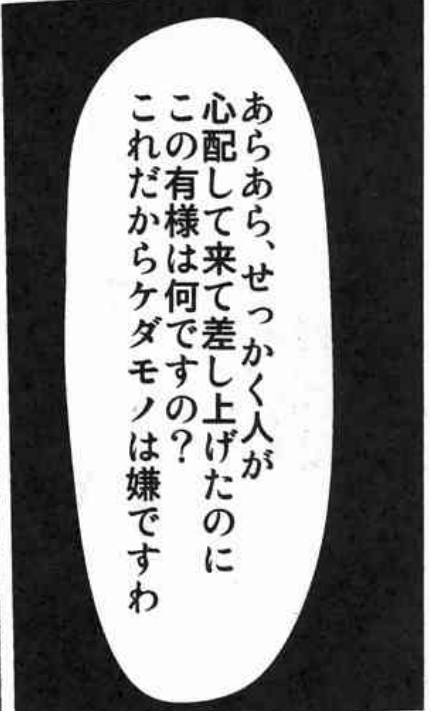 あらあら、せっかく人が
心配して来て差し上げたのに
この有様は何ですの？
これだからケダモノは嫌ですわ